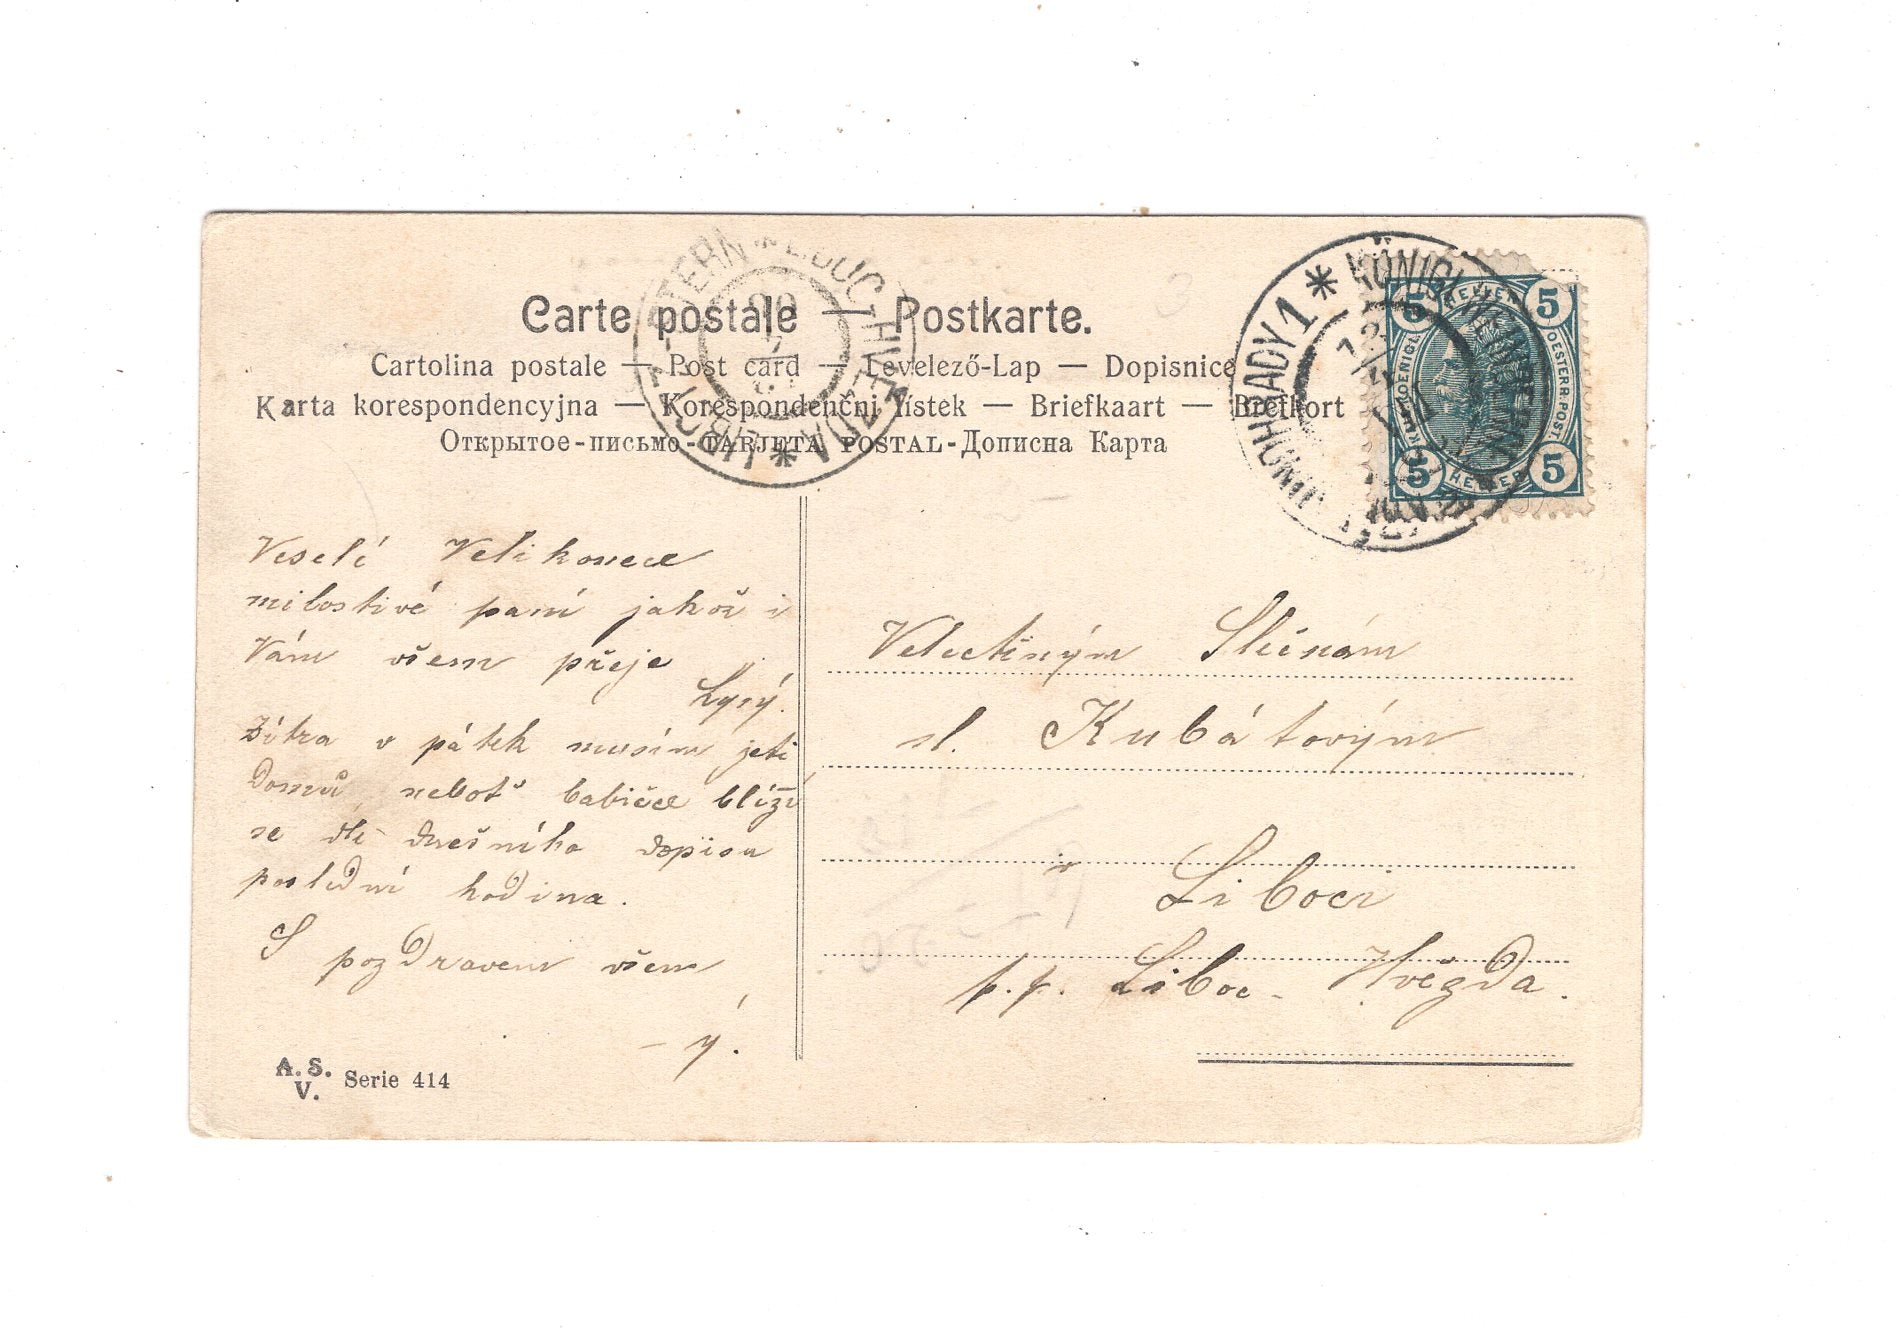 Carte postale — Postkarte.
Cartolina postale — Post card — Levelező-Lap — Dopisnice
Karta korespondencyjna — Korespondenčni lístek — Briefkaart — Brefkort
Открытое-письмо-TARJETA POSTAL-Дописна Карта
* KÖNIGL. WEINBERGE
VINOHRADY 1
5 HELLER 5
OESTERR. POST.
5 HELLER 5
LIBOC
HVĚZDA
Veselé Velikonece
milostivé paní jakož i
Vám všem přeje
Lysý.
Zítra v pátek musím jeti
domů neboť babičce blíží
se dle dnešního dopisu
poslední hodina.
S pozdravem všem
– ý.
Velectěným Slečnám
sl. Kubátovým
v Liboci
p. p. Liboc - Hvězda.
A. S.
V. Serie 414